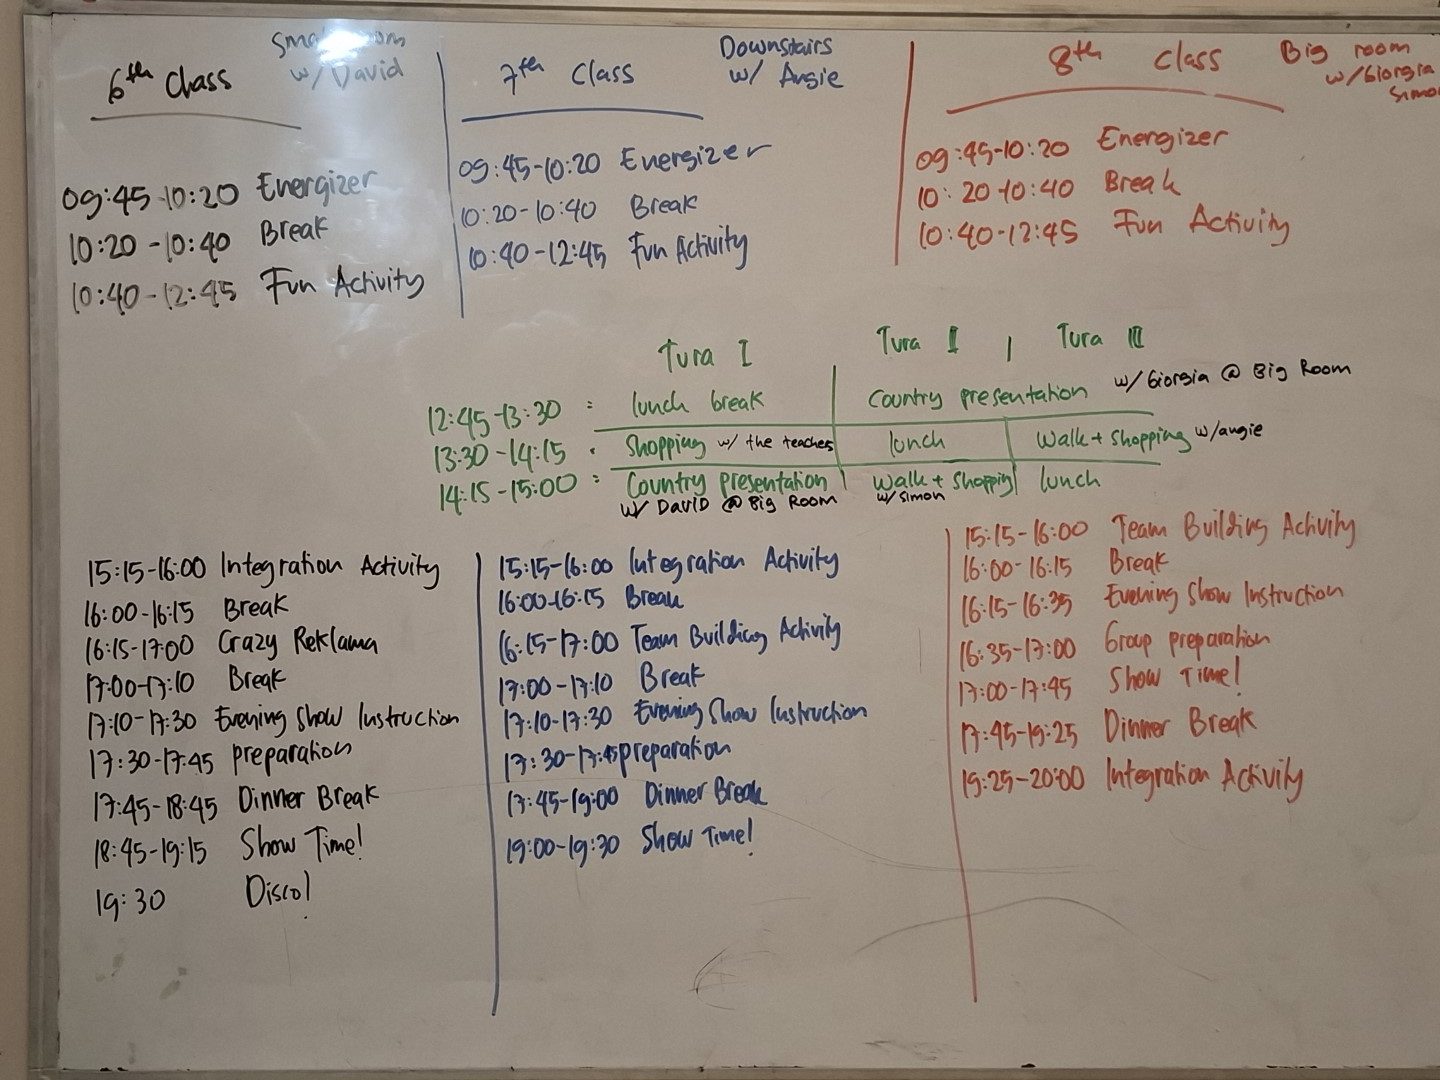 6th Class
Small room
w/ David
09:45-10:20 Energizer
10:20-10:40 Break
10:40-12:45 Fun Activity
7th Class
Downstairs
w/ Angie
09:45-10:20 Energizer
10:20-10:40 Break
10:40-12:45 Fun Activity
8th Class
Big room
w/Giorgia
Simon
09:45-10:20 Energizer
10:20-10:40 Break
10:40-12:45 Fun Activity
Tura I Tura II | Tura III
12:45-13:30 : lunch break Country presentation w/ Giorgia @ Big Room
13:30-14:15 : Shopping w/ the teaches lunch Walk + shopping w/angie
14:15-15:00 : Country presentation Walk + shopping lunch
w/ DAVID @ Big Room w/ simon
15:15-16:00 Integration Activity
16:00-16:15 Break
16:15-17:00 Crazy Reklama
17:00-17:10 Break
17:10-17:30 Evening Show Instruction
17:30-17:45 preparation
17:45-18:45 Dinner Break
18:45-19:15 Show Time!
19:30 Disco!
15:15-16:00 Integration Activity
16:00-16:15 Break
16:15-17:00 Team Building Activity
17:00-17:10 Break
17:10-17:30 Evening Show Instruction
17:30-17:45 preparation
17:45-19:00 Dinner Break
19:00-19:30 Show Time!
15:15-16:00 Team Building Activity
16:00-16:15 Break
16:15-16:35 Evening Show Instruction
16:35-17:00 Group preparation
17:00-17:45 Show Time!
17:45-19:25 Dinner Break
19:25-20:00 Integration Activity